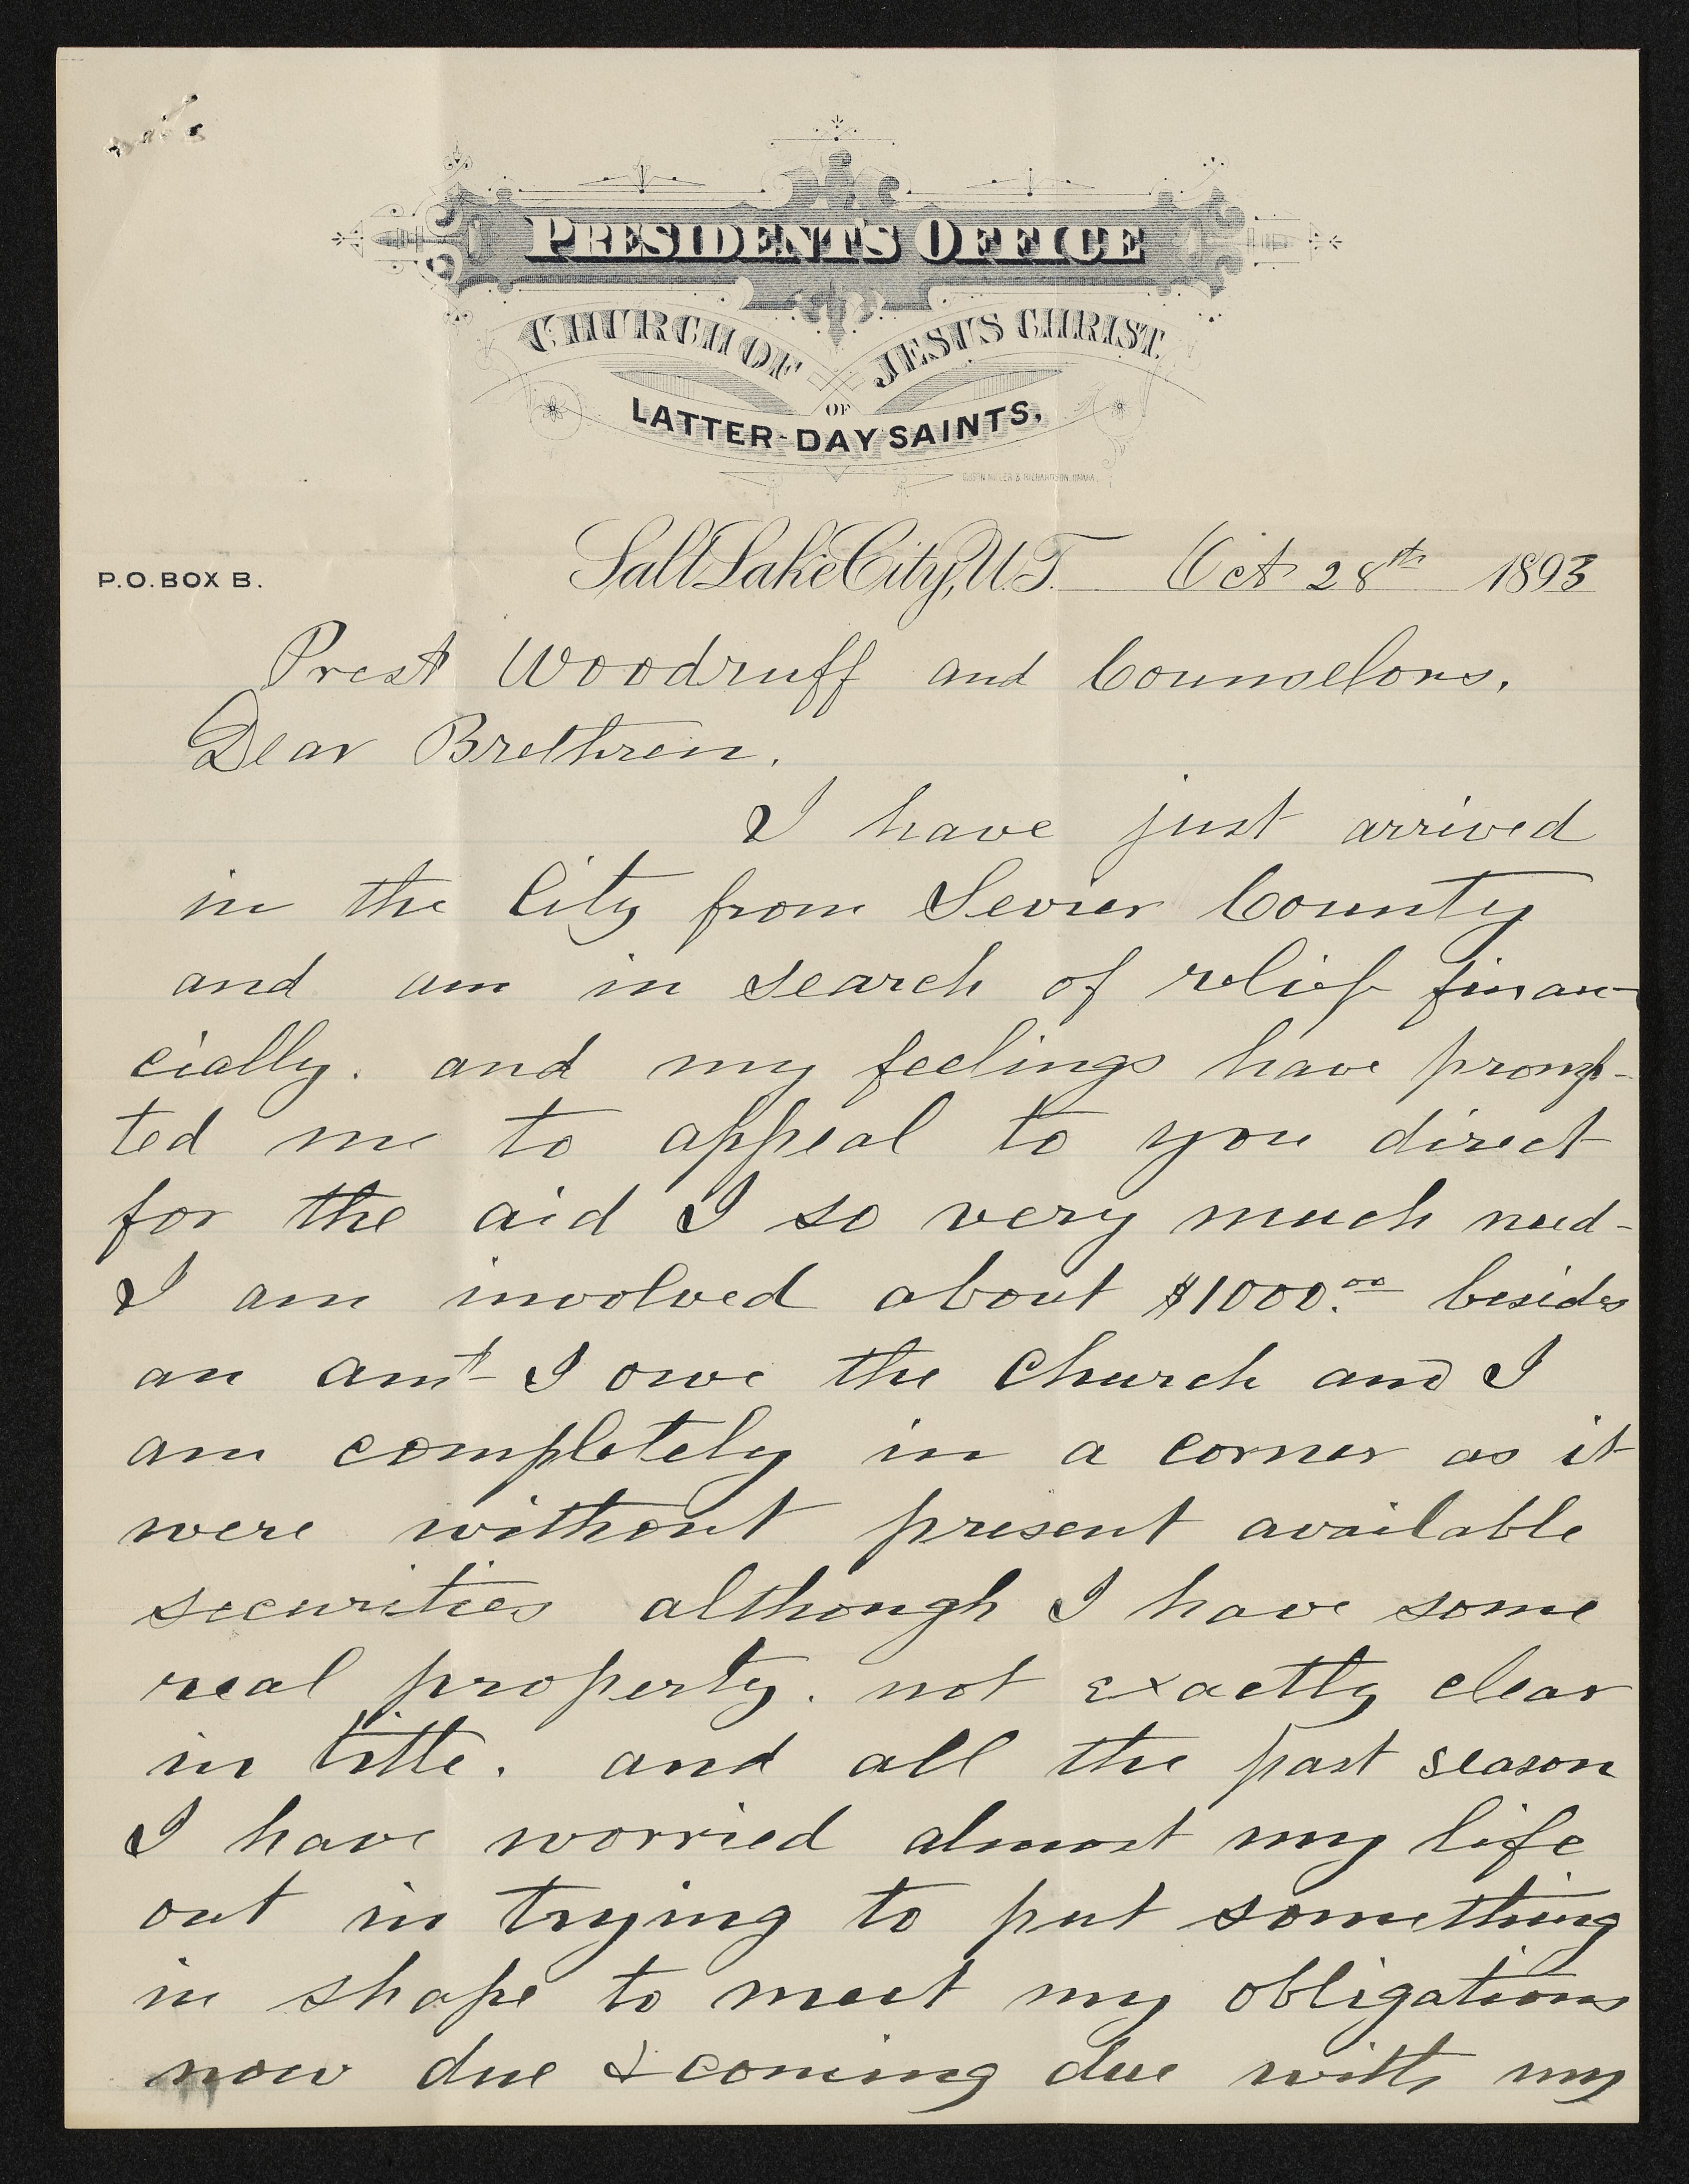 PRESIDENT'S OFFICE
CHURCH OF JESUS CHRIST
OF
LATTER-DAY SAINTS,
P.O. BOX B.
Salt Lake City, U.T. Oct 28th 1893
Prest Woodruff and Counselors.
Dear Brethren.
I have just arrived
in the City from Sevier County
and am in search of relief finan-
cially. and my feelings have promp-
ted me to appeal to you direct
for the aid I so very much need-
I am involved about $1000.00 besides
an amt I owe the Church and I
am completely in a corner as it
were without present available
securities although I have some
real property. not exactly clear
in title. and all the past season
I have worried almost my life
out in trying to put something
in shape to meet my obligations
now due & coming due with my